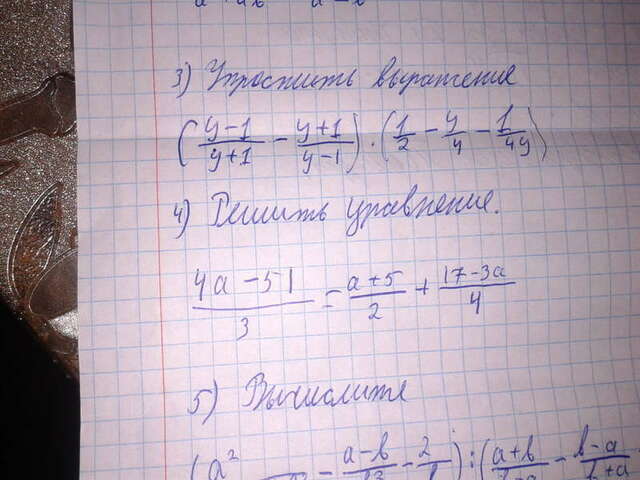 3) Упростить выражение
(y-1/y+1 - y+1/y-1) · (1/2 - y/4 - 1/4y)
4) Решить уравнение.
4a-51/3 = a+5/2 + 17-3a/4
5) Вычислите